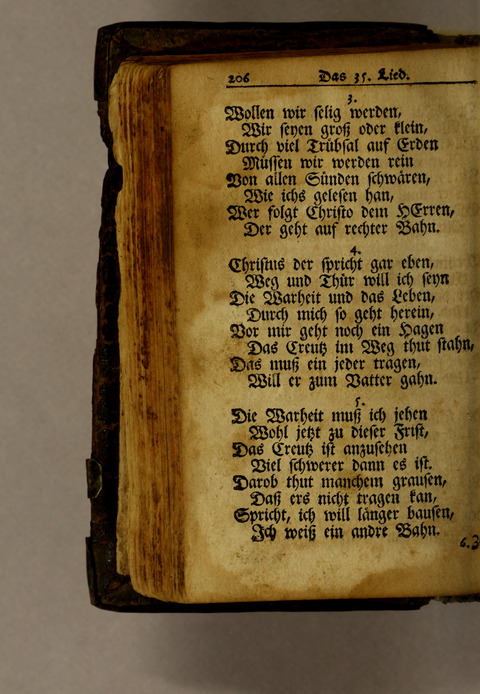 206 Das 35. Lied.
3.
Wollen wir selig werden,
Wir seyen groß oder klein,
Durch viel Trübsal auf Erden
Müssen wir werden rein
Von allen Sünden schwären,
Wie ichs gelesen han,
Wer folgt Christo dem HErren,
Der geht auf rechter Bahn.
4.
Christus der spricht gar eben,
Weg und Thür will ich seyn
Die Warheit und das Leben,
Durch mich so geht herein,
Vor mir geht noch ein Hagen
Das Creutz im Weg thut stahn,
Das muß ein jeder tragen,
Will er zum Vatter gahn.
5.
Die Warheit muß ich jehen
Wohl jetzt zu dieser Frist,
Das Creutz ist anzusehen
Viel schwerer dann es ist.
Darob thut manchem grausen,
Daß ers nicht tragen kan,
Spricht, ich will länger hausen,
Ich weiß ein andre Bahn.